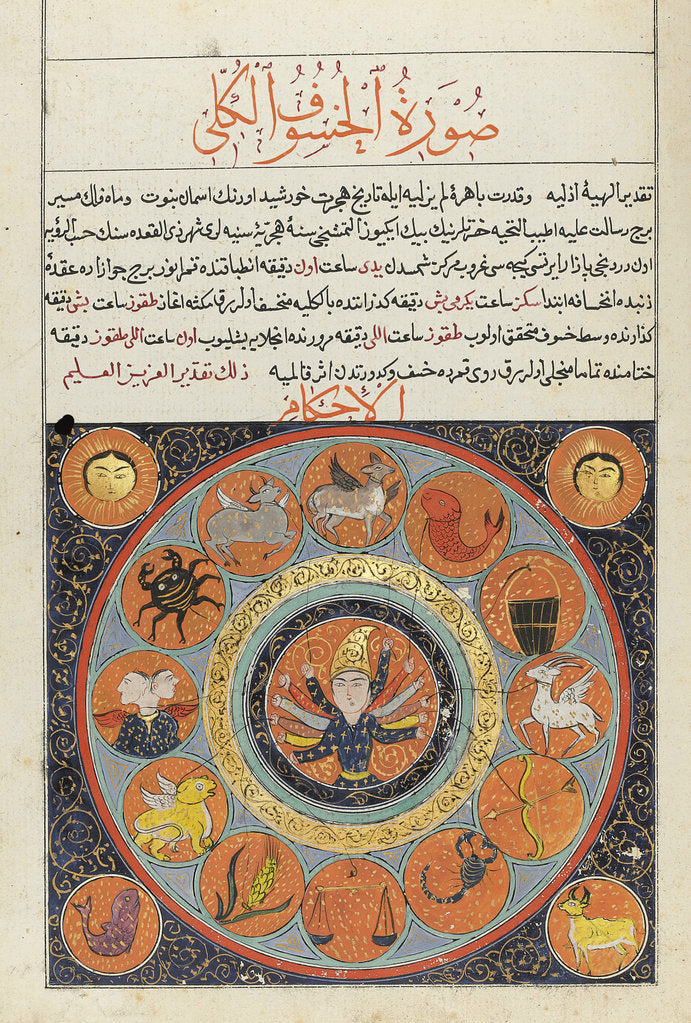 صُورَةُ ٱلْخُسُوفُ ٱلْكُلِّى
تقدير الهيۀ ازليه وقدرت باهرۀ لم يزليه ايله تاريخ هجرت خورشيد اورنك اسمان بنوت وماه فلك مسير
برج رسالت عليه اطيب التحيه حضرتلرينك بيك ايكيوز التمشنجى سنۀ هجريۀ سنيه لرى شهر ذى القعده سنك حسب الرؤيه
اون دردنجى بازار ايرتسى كيجه سى غروب مركز شمسدن يدى ساعت اون دقيقه انطباقنده قمر انور برج جوزاده عقدۀ
ذنبده انخسافه ابتدا سكز ساعت يكرمى بش دقيقه كذراننده بالكليه منخسف اوله رق مكثه اغاز طقوز ساعت بش دقيقه
كذارنده وسط خسوف متحقق اولوب طقوز ساعت اللى دقيقه مرورنده انجلايه بشليوب اون ساعت اللى طقوز دقيقه
ختامنده تماما منجلى اوله رق روى قمرده خسف وكدورتدن اثر قالميه ذلك تقدير العزيز العليم
الاحكام